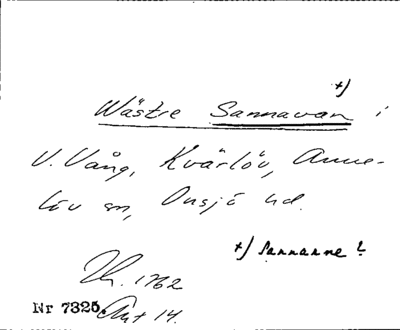 +)
Wästre Sannavan i
V. Vång, Kvärlöv, Anne-
löv sn, Onsjö hd.
+) Sannarne?
Nr 7325. Akt 14.